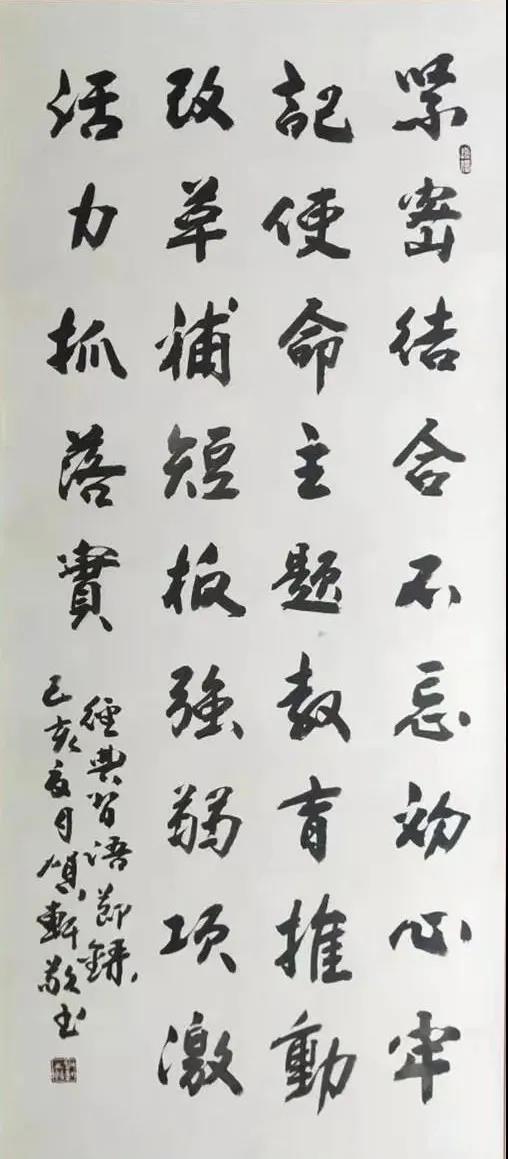 紧密结合不忘初心牢
記使命主题教育推動
改革補短板強弱项激
活力抓落實
經典習語節錄
己亥夏月軒敬书